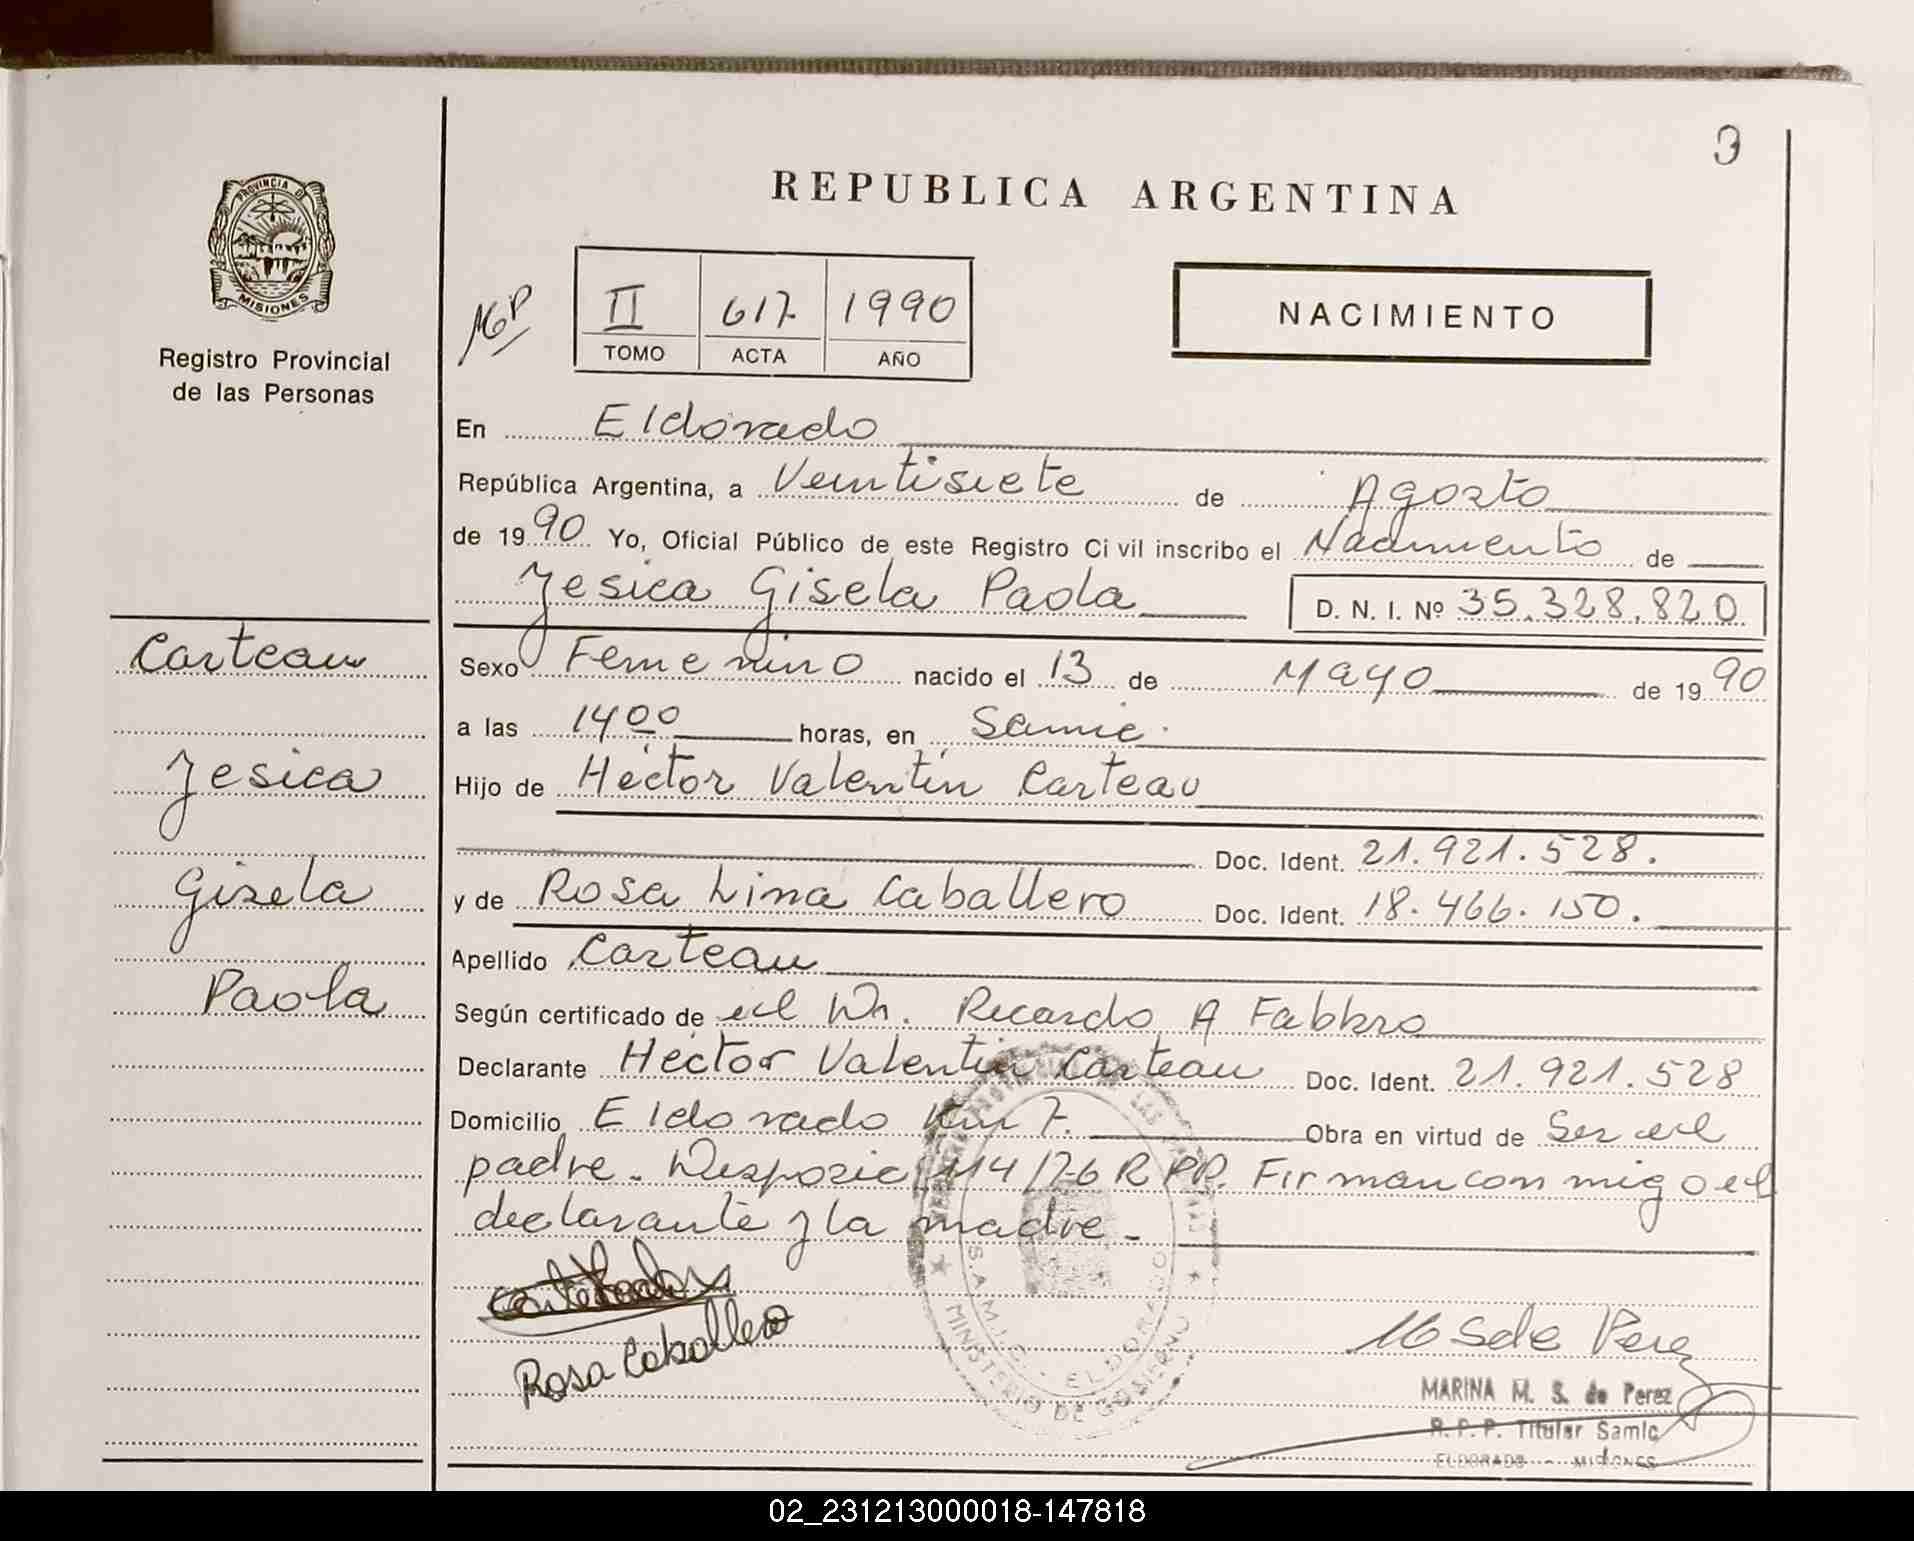 3
PROVINCIA D
MISIONES
Registro Provincial
de las Personas
REPUBLICA ARGENTINA
II 617 1990
TOMO ACTA AÑO
NACIMIENTO
En Eldorado
República Argentina, a Veintisiete de Agosto
de 1990 Yo, Oficial Público de este Registro Civil inscribo el Nacimiento de
Jesica Gisela Paola D. N. I. Nº 35.328.820
Carteau
Jesica
Gisela
Paola
Sexo Femenino nacido el 13 de Mayo de 1990
a las 1400 horas, en Samic.
Hijo de Héctor Valentín Carteau
Doc. Ident. 21.921.528.
y de Rosa Lina Caballero Doc. Ident. 18.466.150.
Apellido Carteau
Según certificado de el Dr. Ricardo A Fabbro
Declarante Héctor Valentín Carteau Doc. Ident. 21.921.528
Domicilio Eldorado Km 7. Obra en virtud de Ser el
padre. Disposic 114/76 R PP. Firman conmigo el
declarante y la madre.
Rosa Caballero
S.A.M.I.C. ELDORADO
MINISTERIO DE GOBIERNO
M S de Perez
MARINA M. S. de Perez
R. P. P. Titular Samic
ELDORADO - MISIONES
02_231213000018-147818